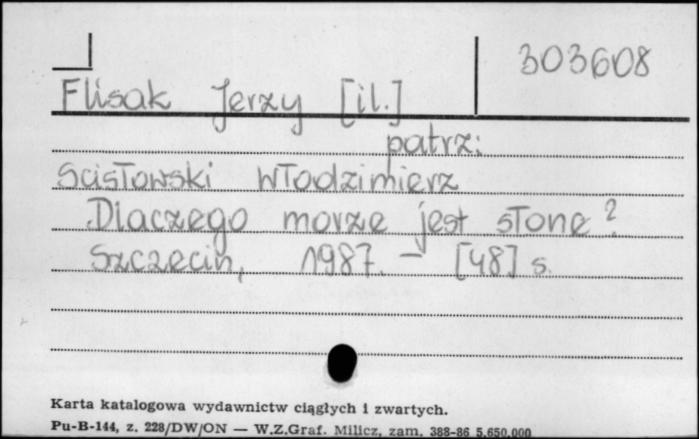 303608
Flisak Jerzy [il.]
patrz:
Ścisłowski Włodzimierz
Dlaczego morze jest słone?
Szczecin, 1987. – [48] s.
Karta katalogowa wydawnictw ciągłych i zwartych.
Pu-B-144, z. 228/DW/ON — W.Z.Graf. Milicz, zam. 388-86 5.650.000